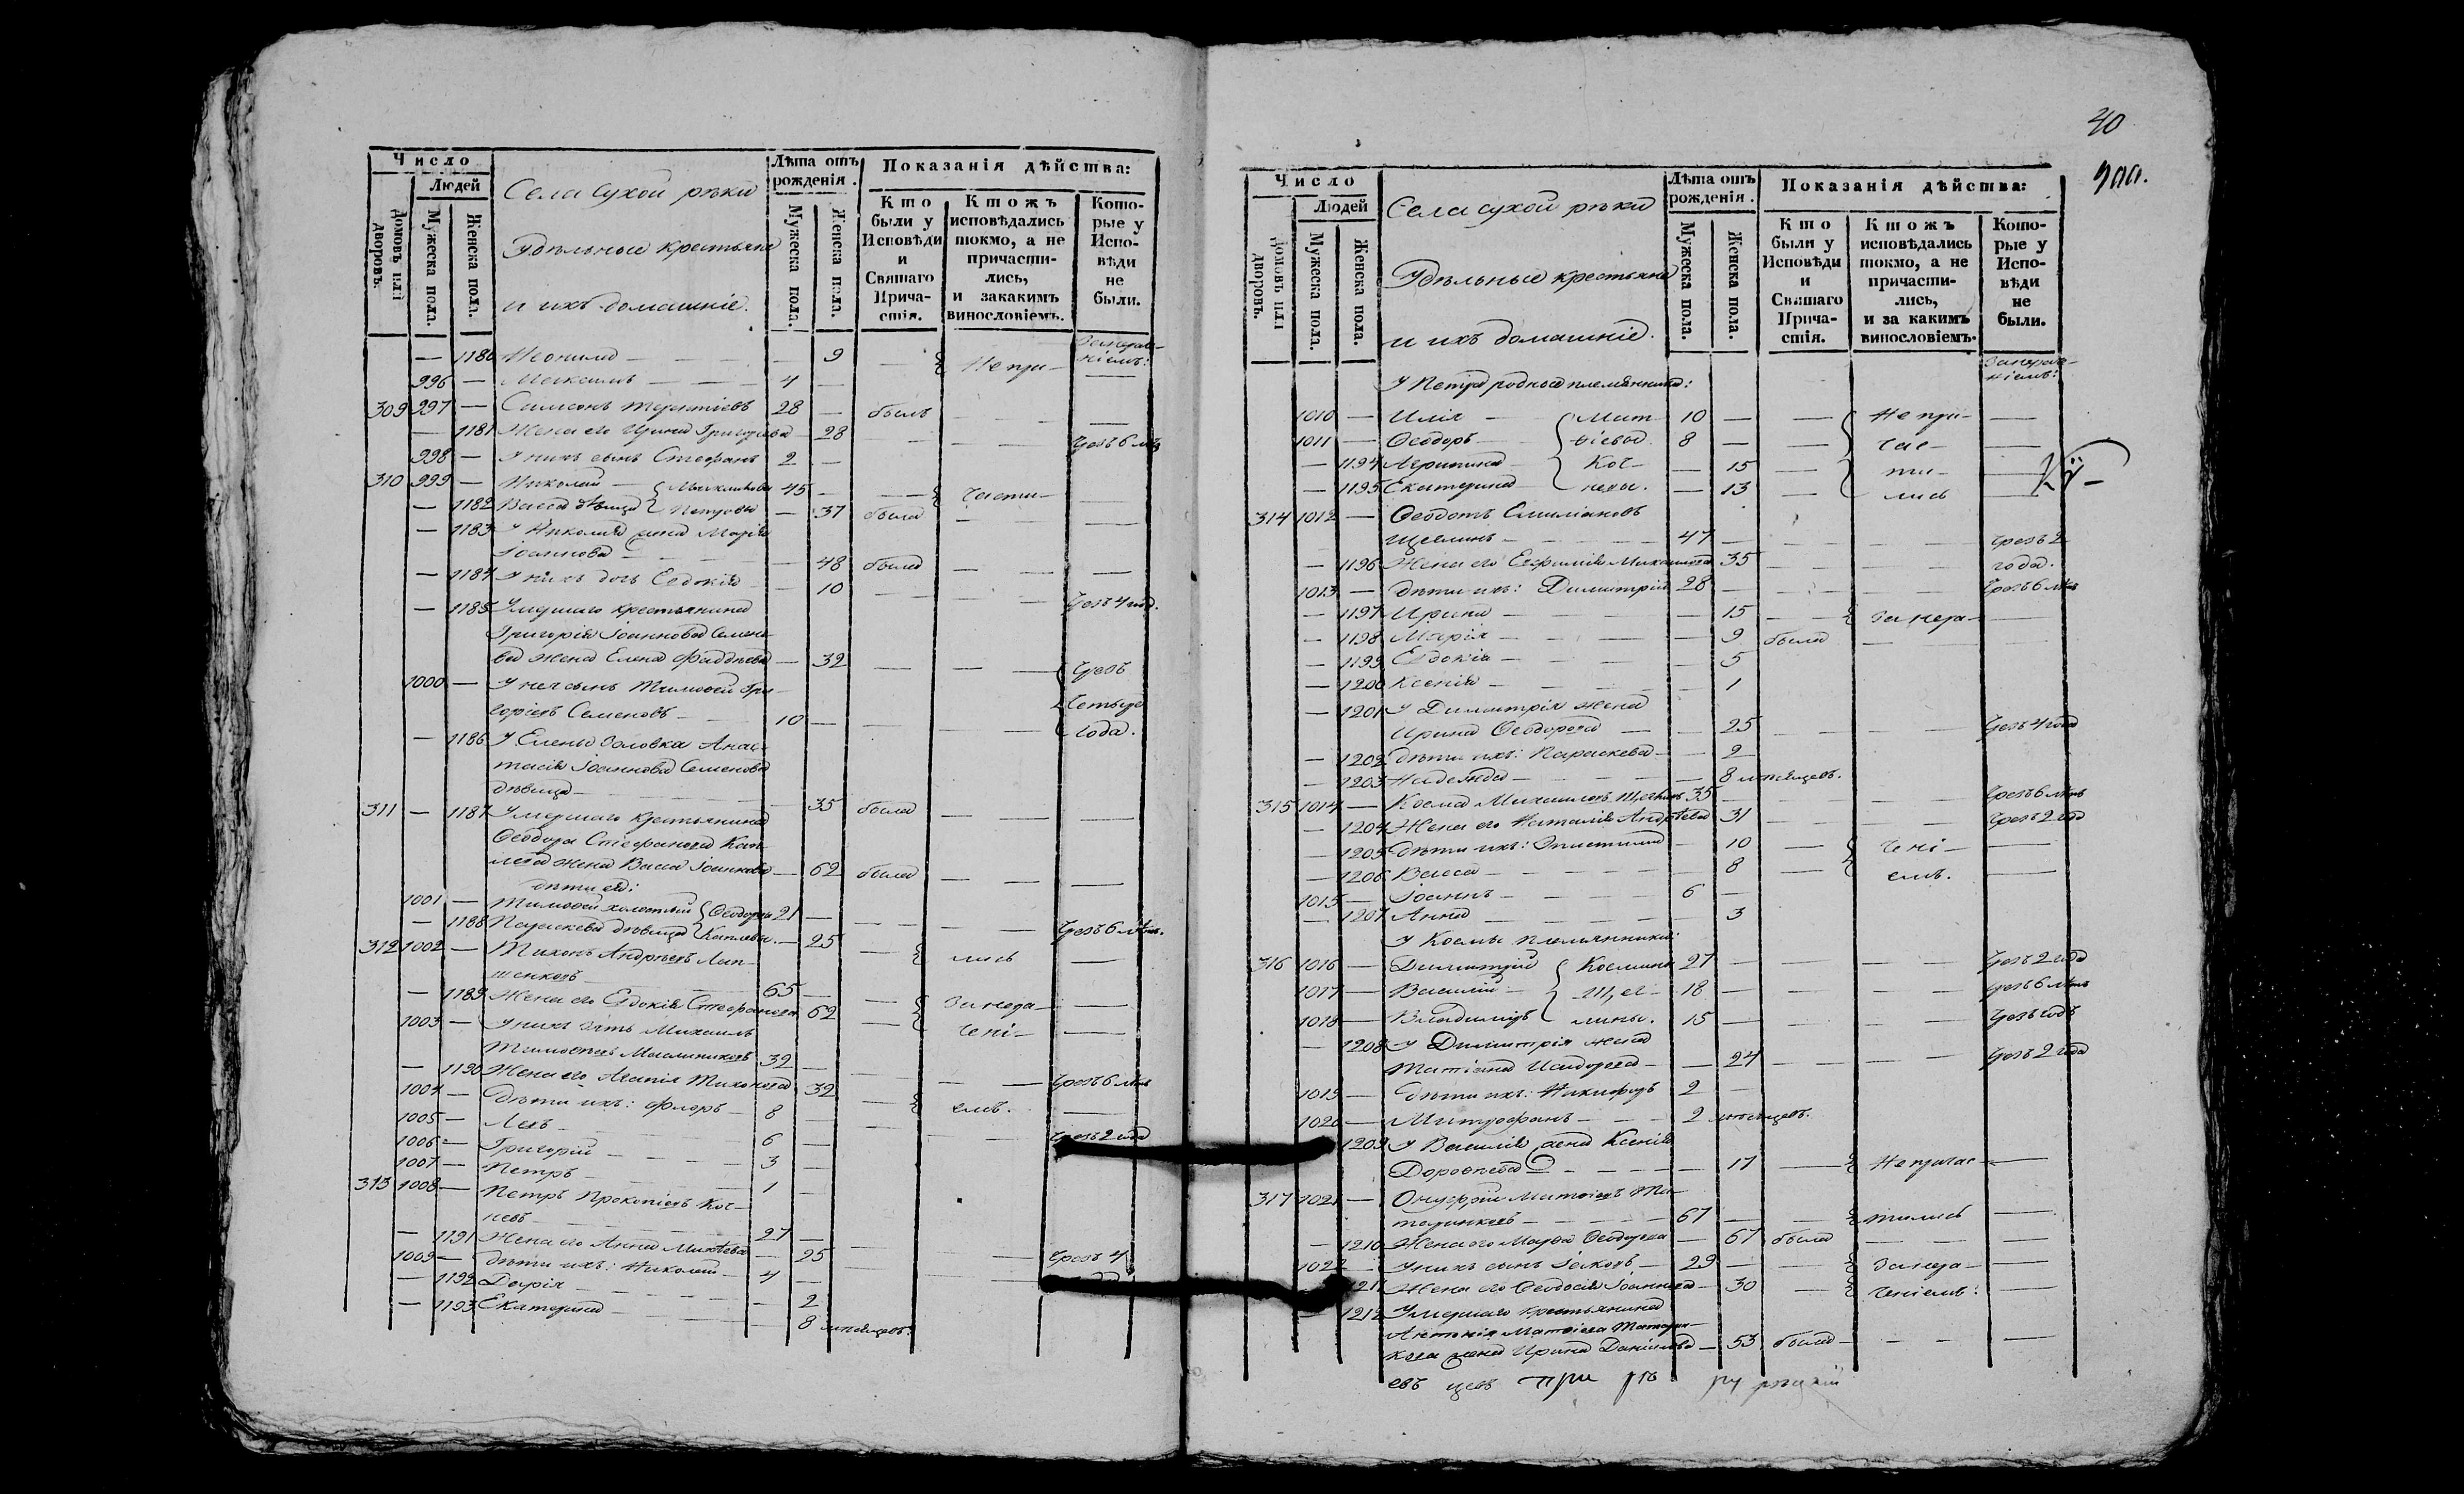 Число
Людей
Домовъ или дворовъ.
Мужеска пола.
Женска пола.
Села Сухой рѣки
Удѣльные крестьяне
и ихъ домашніе.
Лѣта отъ рожденія.
Мужеска пола.
Женска пола.
Показанія дѣйства:
Кто были у Исповѣди и Святаго Прича- стія.
Ктожъ исповѣдались токмо, а не причасти- лись, и закакимъ винословіемъ.
Кото- рые у Испо- вѣди не были.
— 1180 Неонила — 9 — Непри—
996 — Максимъ — 4 —
309 997 — Самсонъ Терентіевъ 28 — былъ
— 1181 Жена его Ирина Григорьева — 28 — чрезъ 6 лѣтъ
998 — У нихъ сынъ Стефанъ 2 —
310 999 — Николай 45 — части—
— 1182 Васса дѣвица Петровы — 37 была
— 1183 У Николая жена Марія
Іоаннова — 48 была
— 1184 У нихъ дочь Евдокія — 10
— 1185 Умершаго крестьянина чрезъ 4 год.
Григорія Іоаннова Семено-
ва жена Елена Фаддѣева — 32 — чрезъ
1000 — У нея сынъ Тимофей Гри- четыре
горіевъ Семеновъ — 10 — года.
— 1186 У Елены золовка Анас-
тасія Іоаннова Семенова
дѣвица — 35 была
311 — 1187 Умершаго крестьянина
Феодора Стефанова Кап-
лева жена Васса Іоаннова — 62 была
дѣти ея:
1001 — Тимофей холостый Феодоровы 21 —
— 1188 Параскева дѣвица Каплевы. — 25 — чрезъ 6 лѣтъ.
312 1002 — Тихонъ Андреевъ Лап- — лись
шенковъ 65 —
— 1189 Жена его Евдокія Стефанова 62 — Занера—
1003 — У нихъ зять Михаилъ чені—
Тимофеевъ Масленниковъ 32 —
— 1190 Жена его Агапія Тихонова 32 — чрезъ 6 лѣтъ
1004 — Дѣти ихъ: Флоръ — 8 — емъ.
1005 — Левъ — 6 — чрезъ 2 года
1006 — Григорій — 3 —
1007 — Петръ — 1 —
313 1008 — Петръ Прокопіевъ Коч-
невъ — 27 —
— 1191 Жена его Анна Михѣева — 25 — чрезъ 4
1009 — Дѣти ихъ: Николай — 4 —
— 1192 Дарія — 2
— 1193 Екатерина — 8 мѣсяцевъ.
40
Число
Людей
Домовъ или дворовъ.
Мужеска пола.
Женска пола.
Села Сухой рѣки
Удѣльные крестьяне
и ихъ домашніе.
Лѣта отъ рожденія.
Мужеска пола.
Женска пола.
Показанія дѣйства:
Кто были у Исповѣди и Святаго Прича- стія.
Ктожъ исповѣдались токмо, а не причасти- лись, и за какимъ винословіемъ.
Кото- рые у Испо- вѣди не были.
У Петра родные племянники:
1010 — Илія — Мат- 10 — Непри—
1011 — Феодоръ — ѳіевы 8 — час—
— 1194 Агрипина Коч- — 15 — ти—
— 1195 Екатерина невы. — 13 — лись
314 1012 — Феодотъ Емиліановъ
Щеглинъ — 47 — чрезъ 2
— 1196 Жена его Евфимія Михаилова 35 — года.
1013 — Дѣти ихъ: Димитрій 28 — чрезъ 6 лѣтъ
— 1197 Ирина — 15 — Занера—
— 1198 Марія — 9 была
— 1199 Евдокія — 5
— 1200 Ксенія — 1
— 1201 У Димитрія жена
Ирина Феодорова — 25 — чрезъ 4 года
— 1202 Дѣти ихъ: Параскева — 2
— 1203 Надежда — 8 мѣсяцевъ.
315 1014 — Косма Михаиловъ Щеглинъ 35 — чрезъ 6 лѣтъ
— 1204 Жена его Наталія Андрѣева 31 — чрезъ 2 года
— 1205 Дѣти ихъ: Эпистимія — 10 — чені—
— 1206 Васса — 8 — емъ.
1015 — Іоаннъ — 6 —
— 1207 Анна — 3
У Космы племянники:
316 1016 — Димитрій Космины 27 — чрезъ 2 года
1017 — Василій Щег- 18 — чрезъ 6 лѣтъ
1018 — Владимиръ лины. 15 — чрезъ годъ
— 1208 У Димитрія жена
Татіана Исидорова — 24 — чрезъ 2 года
1019 — Дѣти ихъ: Никифоръ 2 —
1020 — Митрофанъ — 2 мѣсяцевъ.
1209 У Василія жена Ксенія
Дорофеева — 17 — Непричас—
317 1021 — Онуфрій Матѳіевъ Та-
таринковъ — 67 — тились
— 1210 Жена его Марѳа Феодорова — 67 была
1022 У нихъ сынъ Іаковъ — 29 — Занера—
1211 Жена его Феодосія Іоаннова — 30 — ченіемъ:
— 1212 Умершаго крестьянина
Антонія Матѳіева Татарин-
кова жена Ирина Даніилова — 53 была
евъ цевъ при